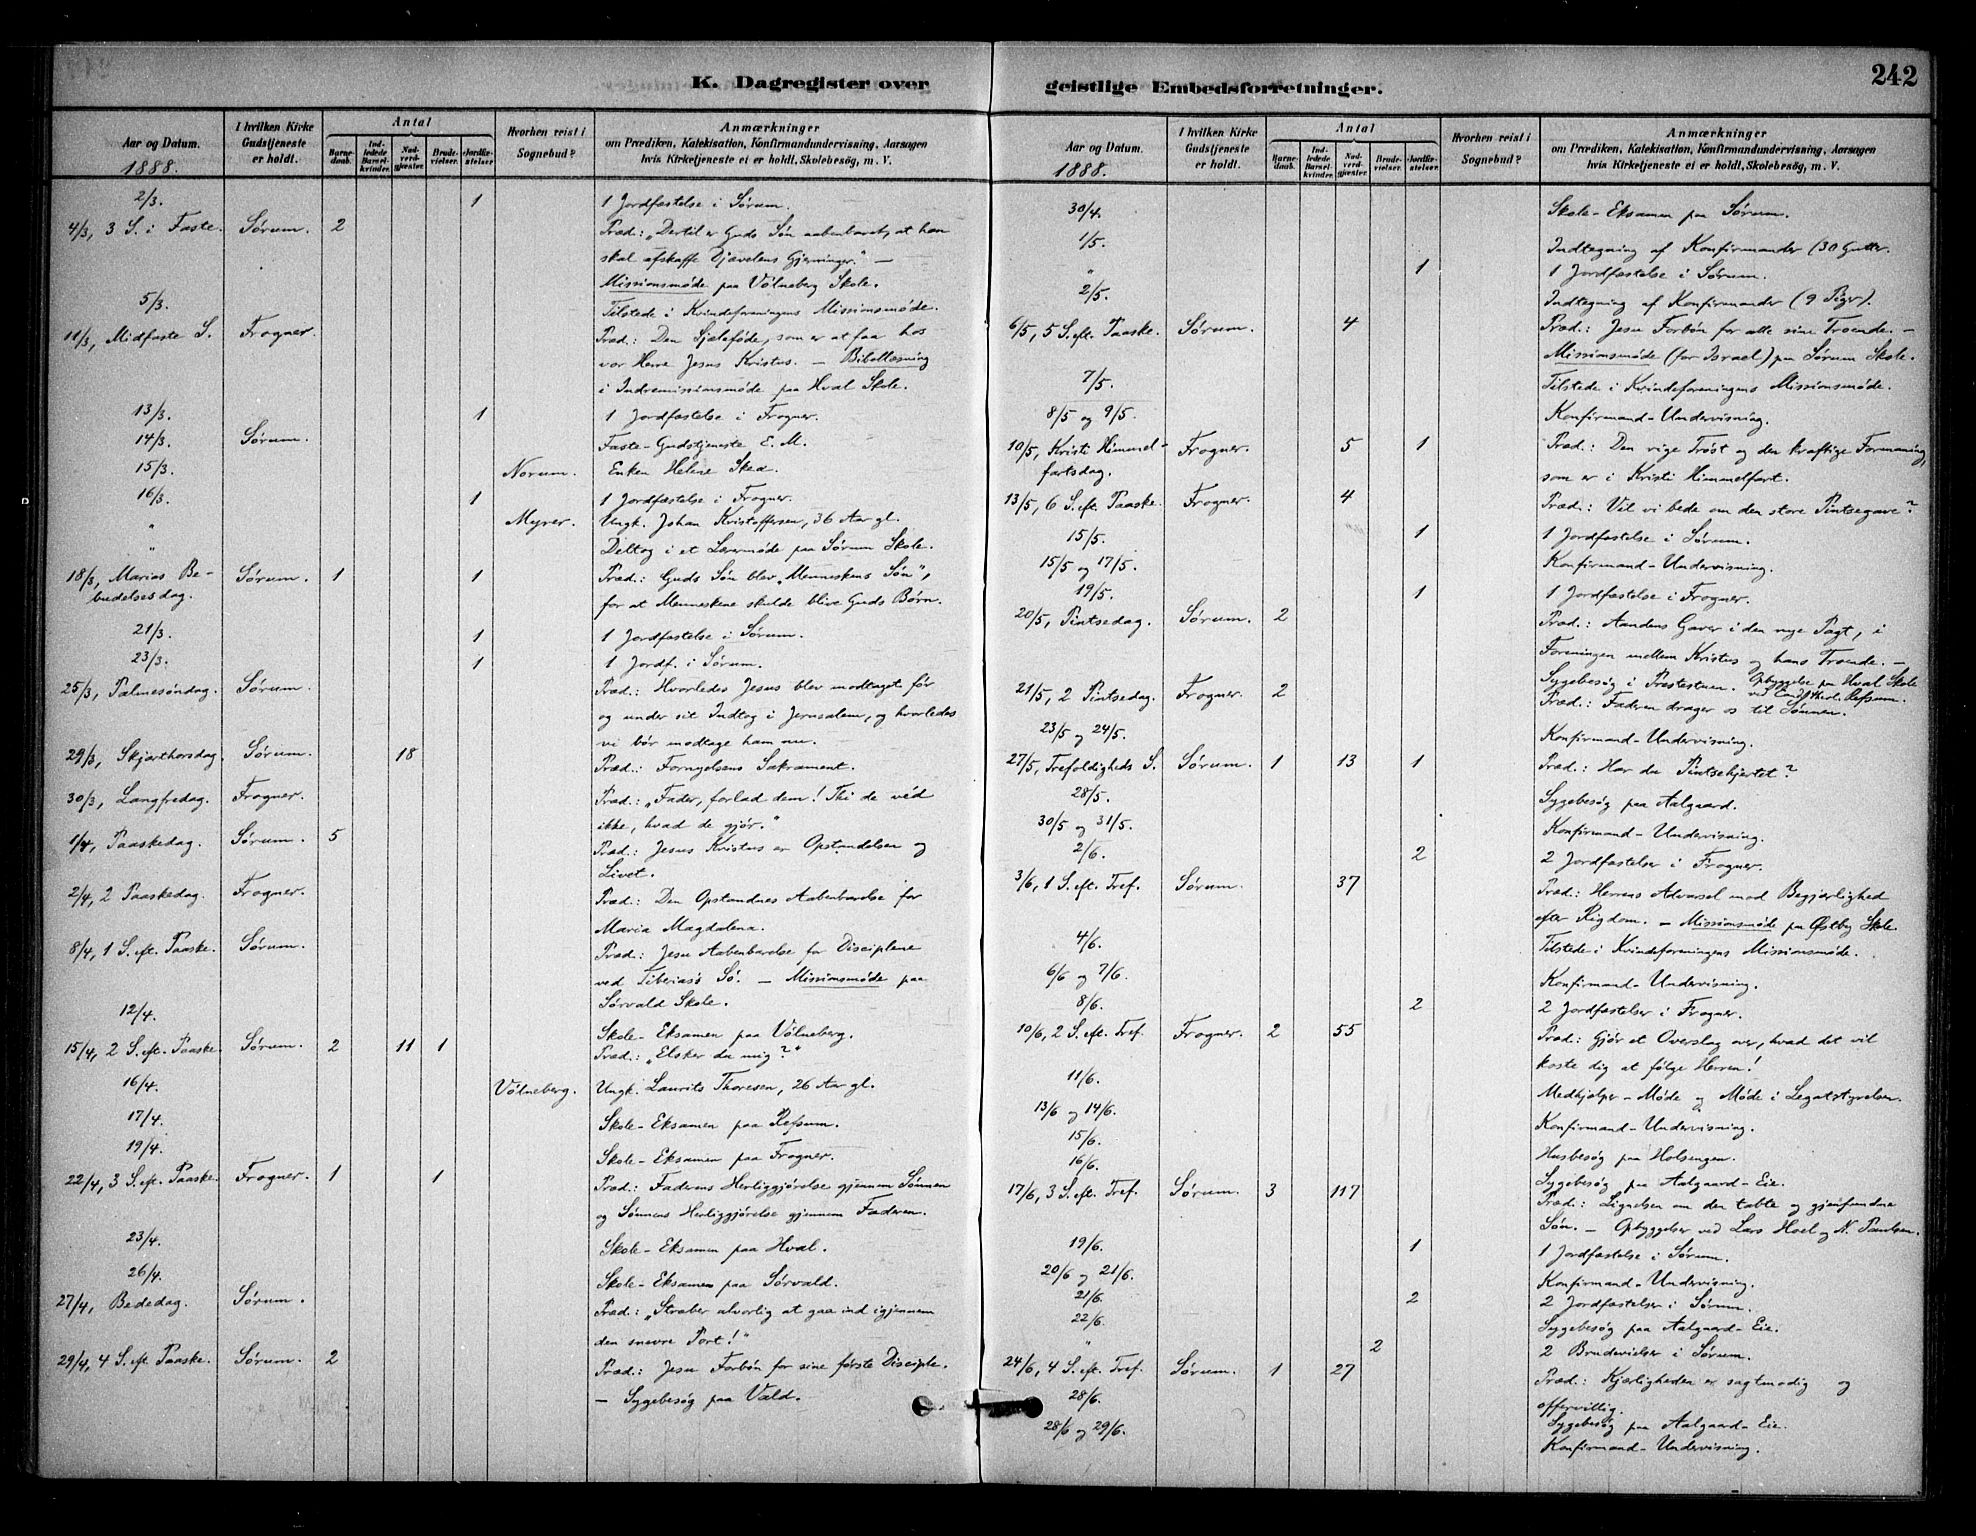 K. Dagregister over geistlige Embedsforretninger. 242
Aar og Datum. 1888. I hvilken Kirke Gudstjeneste er holdt. Antal Barnedaab. Indledede Barselkvinder. Nadverdgjæster. Brudevielser. Jordfæstelser. Hvorhen reist i Sognebud? Anmærkninger om Prædiken, Katekisation, Konfirmandundervisning, Aarsagen hvis Kirketjeneste ei er holdt, Skolebesøg, m. V.
2/3. 1 1 Jordfæstelse i Sørum.
4/3, 3 S. i Faste. Sørum. 2 Præd.: „Dertil er Guds Søn aabenbaret, at han
skal afskaffe Djævelens Gjerninger." —
Missionsmøde paa Vølneberg Skole.
5/3. Tilstede i Kvindeforeningens Missionsmøde.
11/3, Midfaste S. Frogner. Præd.: Den Sjæleføde, som er at faa hos
vor Herre Jesus Kristus. — Bibellæsning
i Indremissionsmøde paa Hval Skole.
13/3. 1 1 Jordfæstelse i Frogner.
14/3. Sørum. Faste-Gudstjeneste E. M.
15/3. Norum. Enken Helene Sked.
16/3. 1 1 Jordfæstelse i Frogner.
" Myrer. Ungk. Johan Kristoffersen, 36 Aar gl.
" Deltog i et Lærermøde paa Sørum Skole.
18/3, Marias Be- Sørum. 1 1 Præd.: Guds Søn blev „Menneskens Søn",
budelsesdag. for at Menneskene skulde blive Guds Børn.
21/3. 1 1 Jordfæstelse i Sørum.
23/3. 1 1 Jordf. i Sørum.
25/3, Palmesøndag. Sørum. Præd.: Hvorledes Jesus blev modtaget før
og under sit Indtog i Jerusalem, og hvorledes
vi bør modtage ham nu.
29/3, Skjærthorsdag. Sørum. 18 Præd.: Fornyelsens Sakrament.
30/3, Langfredag. Frogner. Præd.: „Fader, forlad dem! Thi de véd
ikke, hvad de gjør."
1/4, Paaskedag. Sørum. 5 Præd.: Jesus Kristus er Opstandelsen og
Livet.
2/4, 2 Paaskedag. Frogner. Præd.: Den Opstandnes Aabenbarelse for
Maria Magdalena.
8/4, 1 S. eft. Paaske. Sørum. Præd.: Jesu Aabenbarelse for Disciplene
ved Tiberias's Sø. — Missionsmøde paa
Sørvald Skole.
12/4. Skole-Eksamen paa Vølneberg.
15/4, 2 S. eft. Paaske. Sørum. 2 11 1 Præd.: „Elsker du mig?"
16/4. Vølneberg. Ungk. Laurits Thoresen, 26 Aar gl.
17/4. Skole-Eksamen paa Refsum.
19/4. Skole-Eksamen paa Frogner.
22/4, 3 S. eft. Paaske. Frogner. 1 1 Præd.: Faderens Herliggjørelse gjennem Sønnen
og Sønnens Herliggjørelse gjennem Faderen.
23/4. Skole-Eksamen paa Hval.
26/4. Skole-Eksamen paa Sørvald.
27/4, Bededag. Sørum. Præd.: „Stræber alvorlig at gaa ind igjennem
den snevre Port!"
29/4, 4 S. eft. Paaske. Sørum. 2 Præd.: Jesu Forbøn for sine første Disciple.
— Sygebesøg paa Vald.
Aar og Datum. 1888. I hvilken Kirke Gudstjeneste er holdt. Antal Barnedaab. Indledede Barselkvinder. Nadverdgjæster. Brudevielser. Jordfæstelser. Hvorhen reist i Sognebud? Anmærkninger om Prædiken, Katekisation, Konfirmandundervisning, Aarsagen hvis Kirketjeneste ei er holdt, Skolebesøg, m. V.
30/4. Skole-Eksamen paa Sørum.
1/5. Indtegning af Konfirmander (30 Gutter.
" 1 1 Jordfæstelse i Sørum.
2/5. Indtegning af Konfirmander (9 Piger).
6/5, 5 S. eft. Paaske. Sørum. 4 Præd.: Jesu Forbøn for alle sine Troende. —
Missionsmøde (for Israel) paa Sørum Skole.
7/5. Tilstede i Kvindeforeningens Missionsmøde.
8/5 og 9/5. Konfirmand-Undervisning.
10/5, Kristi Himmel- Frogner. 5 1 Præd.: Den rige Trøst og den kraftige Formaning,
fartsdag. som er i Kristi Himmelfart.
13/5, 6 S. eft. Paaske. Frogner. 4 Præd.: Vil vi bede om den store Pintsegave?
15/5. 1 1 Jordfæstelse i Sørum.
15/5 og 17/5. Konfirmand-Undervisning.
19/5. 1 1 Jordfæstelse i Frogner.
20/5, Pintsedag. Sørum. 2 Præd.: Aandens Gaver i den nye Pagt, i
Foreningen mellem Kristus og hans Troende. —
Sygebesøg i Præstestuen. Opbyggelse paa Hval Skole
ved Refsum.
21/5, 2 Pintsedag. Frogner. 2 Præd.: Faderen drager os til Sønnen.
23/5 og 24/5. Konfirmand-Undervisning.
27/5, Trefoldigheds S. Sørum. 1 13 1 Præd.: Har du Pintsehjertet?
28/5. Sygebesøg paa Aalgaard.
30/5 og 31/5. Konfirmand-Undervisning.
2/6. 2 2 Jordfæstelser i Frogner.
3/6, 1 S. eft. Tref. Sørum. 37 Præd.: Herrens Advarsel mod Begjærlighed
efter Rigdom. — Missionsmøde paa Østby Skole.
4/6. Tilstede i Kvindeforeningens Missionsmøde.
6/6 og 7/6. Konfirmand-Undervisning.
8/6. 2 2 Jordfæstelser i Frogner.
10/6, 2 S. eft. Tref. Frogner. 2 55 Præd.: Gjør et Overslag over, hvad det vil
koste dig at følge Herren!
11/6. Medhjælper-Møde og Møde i Legatstyrelsen.
13/6 og 14/6. Konfirmand-Undervisning.
15/6. Husbesøg paa Holsengen.
16/6. Sygebesøg paa Aalgaard-Eie.
17/6, 3 S. eft. Tref. Sørum. 3 117 Præd.: Lignelsen om den tabte og gjenfundne
Søn. — Opbyggelser ved Lars Hoel og N. Paulsen.
19/6. 1 1 Jordfæstelse i Sørum.
20/6 og 21/6. Konfirmand-Undervisning.
21/6. 2 2 Jordfæstelser i Sørum.
22/6. Sygebesøg paa Aalgaard-Eie.
" 2 2 Brudevielser i Sørum.
24/6, 4 S. eft. Tref. Sørum. 1 27 Præd.: Kjærligheden er sagtmodig og
offervillig.
28/6. Sygebesøg paa Aalgaard-Eie.
28/6 og 29/6. Konfirmand-Undervisning.